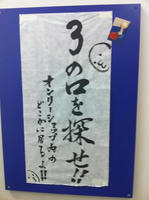 ３の口を探せ!!
オンリーショップ内の
どこかに居るよ!!